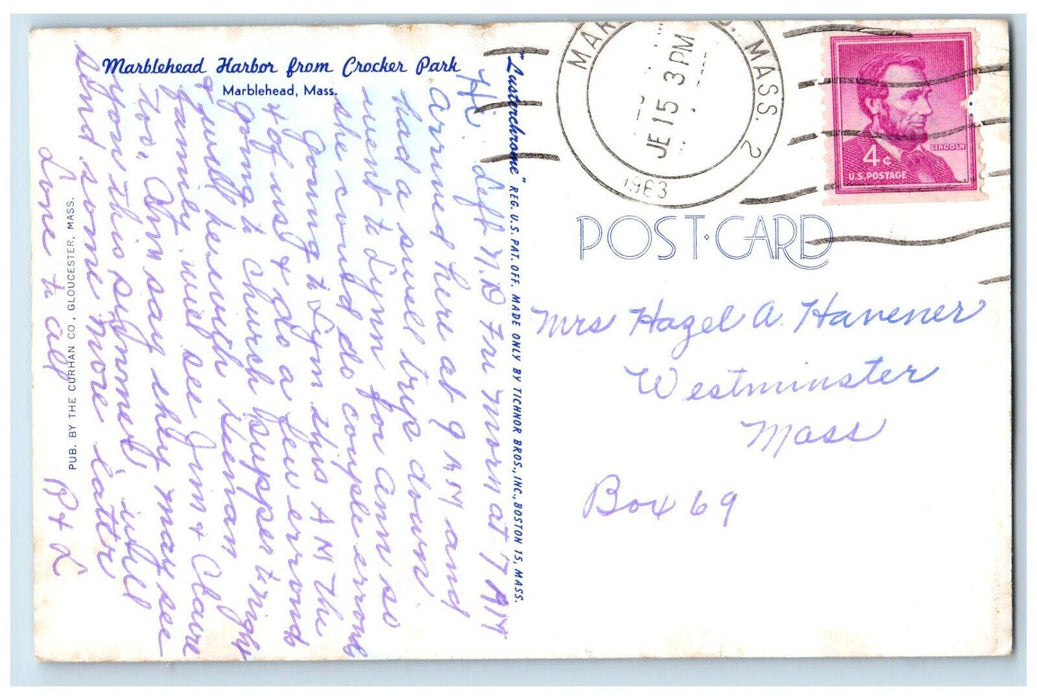 Marblehead Harbor from Crocker Park
Marblehead, Mass.
Hi. Left N.D Fri morn at 7 AM
arrived here at 9 AM and
had a swell trip down
went to Lynn for Am so
she could do couple errons
Going to Lynn this AM the
4 of us & do a few errons
going to Church supper tonight
& will be with
family will see Jim & Claire
too, Am say they may see
you this summer will
send some more later
Love to all R & L
PUB. BY THE CURHAN CO., GLOUCESTER, MASS.
"Lusterchrome" REG. U. S. PAT. OFF. MADE ONLY BY TICHNOR BROS., INC., BOSTON 15, MASS.
MASS. 2
JE 15 3 PM
1963
LINCOLN
4¢
U.S. POSTAGE
POST·CARD
Mrs Hazel A. Havener
Westminster
Mass
Box 69